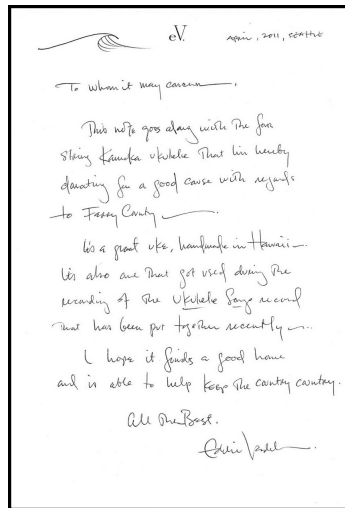 eV.
April, 2011, SEATTLE
To whom it may concern.
This note goes along with The four
string Kamaka ukulele That I'm hereby
donating for a good cause with regards
to Ferry County
It's a great uke, handmade in Hawaii
It's also one that got used during the
recording of The Ukulele Songs record
That has been put together recently
I hope it finds a good home
and is able to help keep The country country.
All The Best.
Eddie Vedder